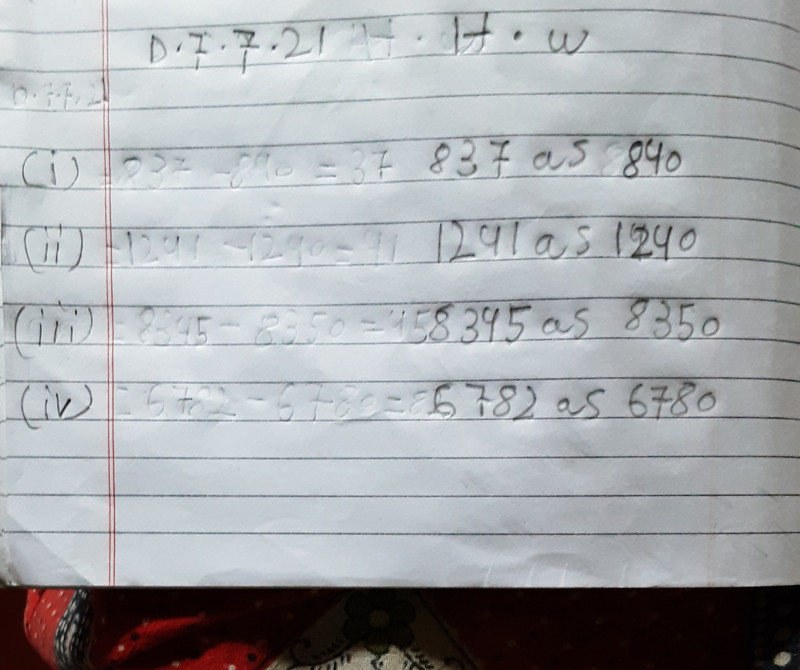 D.7.7.21 H.W
D.7.7.2
(i) 837 as 840
(ii) 1241 as 1240
(iii) 8345 as 8350
(iv) 6782 as 6780